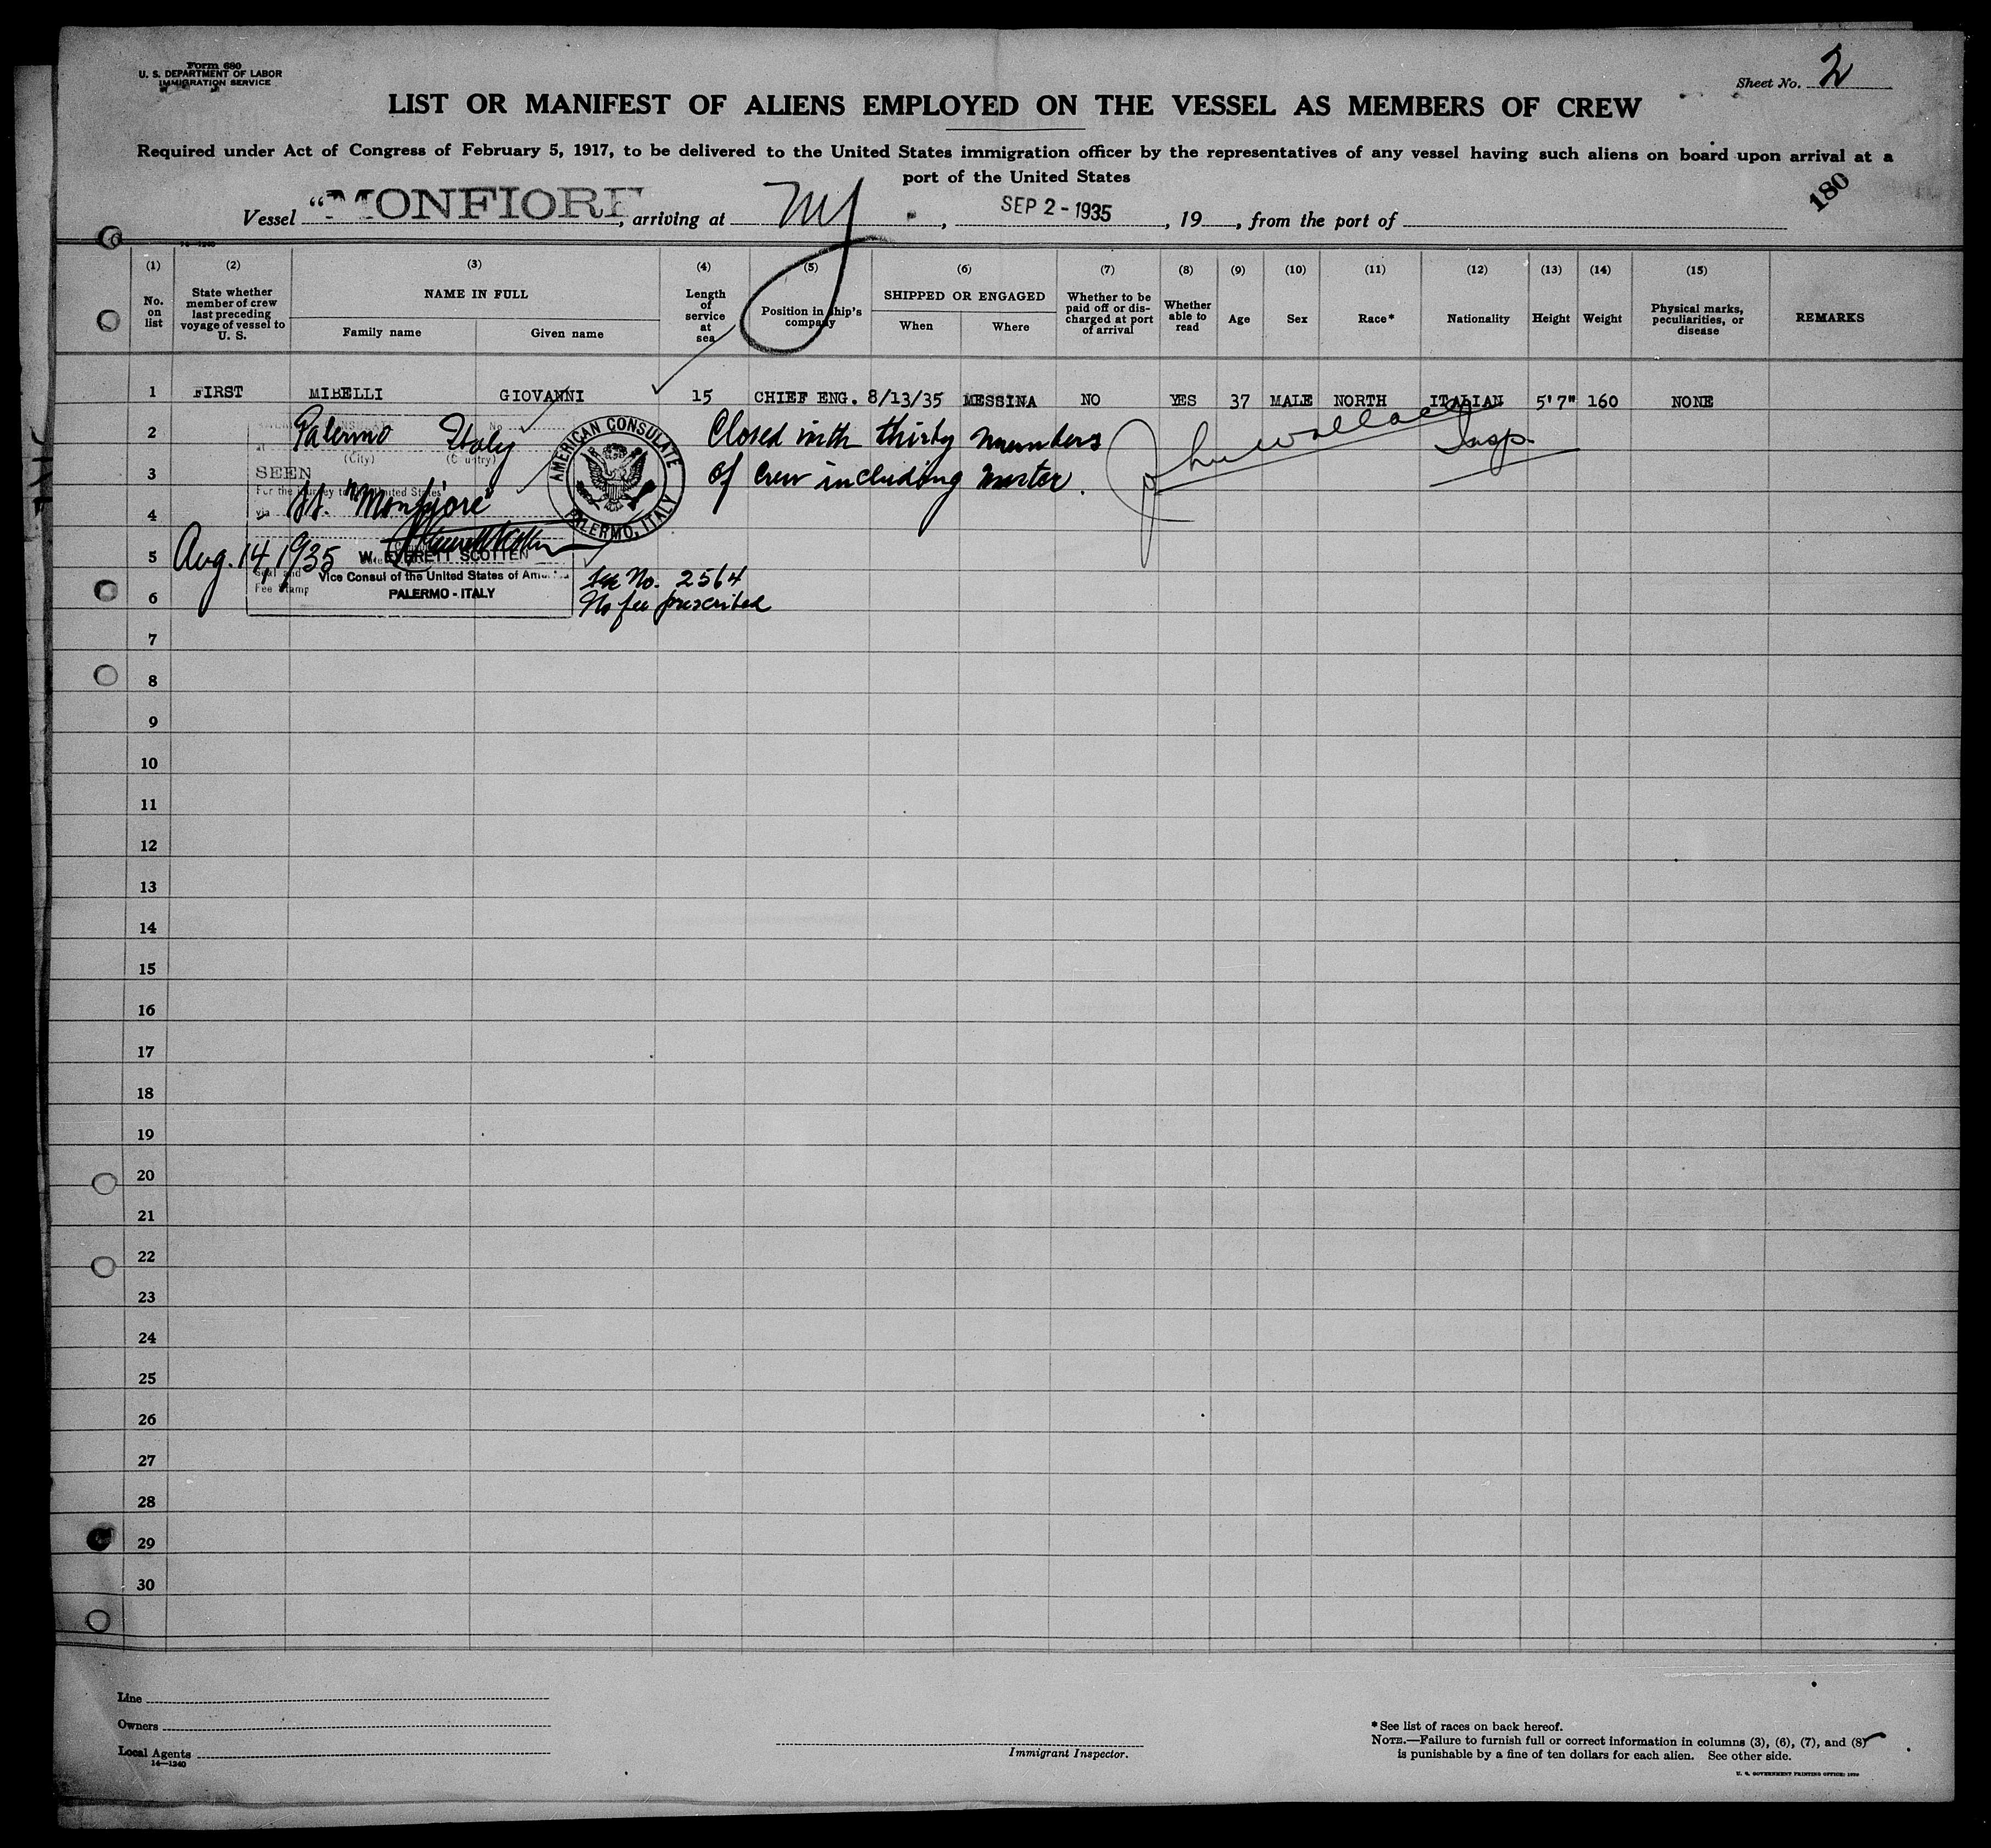 Form 680
U. S. DEPARTMENT OF LABOR
IMMIGRATION SERVICE
Sheet No. 2
LIST OR MANIFEST OF ALIENS EMPLOYED ON THE VESSEL AS MEMBERS OF CREW
Required under Act of Congress of February 5, 1917, to be delivered to the United States immigration officer by the representatives of any vessel having such aliens on board upon arrival at a
port of the United States
180
Vessel "MONFIORE, arriving at NY., SEP 2 - 1935, 19, from the port of
14-1240
(1) (2) (3) (4) (5) (6) (7) (8) (9) (10) (11) (12) (13) (14) (15)
No. on list
State whether member of crew last preceding voyage of vessel to U. S.
NAME IN FULL
Family name
Given name
Length of service at sea
Position in ship's company
SHIPPED OR ENGAGED
When
Where
Whether to be paid off or discharged at port of arrival
Whether able to read
Age
Sex
Race*
Nationality
Height
Weight
Physical marks, peculiarities, or disease
REMARKS
1 FIRST MIBELLI GIOVANNI 15 CHIEF ENG. 8/13/35 MESSINA NO YES 37 MALE NORTH ITALIAN 5'7" 160 NONE
2 Palermo Italy Closed with thirty members
(City) (Country)
AMERICAN CONSULATE
PALERMO, ITALY
Insp.
3 SEEN of crew including master.
For the journey to the United States
4 via SS. "Monfiore"
5 Aug. 14, 1935 W. EVERETT SCOTTEN
Seal and Vice Consul of the United States of America
Fee Stamp PALERMO - ITALY
No. 2564
6 No fee prescribed
7
8
9
10
11
12
13
14
15
16
17
18
19
20
21
22
23
24
25
26
27
28
29
30
Line
Owners
Local Agents
14-1240
Immigrant Inspector.
*See list of races on back hereof.
NOTE.—Failure to furnish full or correct information in columns (3), (6), (7), and (8)
is punishable by a fine of ten dollars for each alien. See other side.